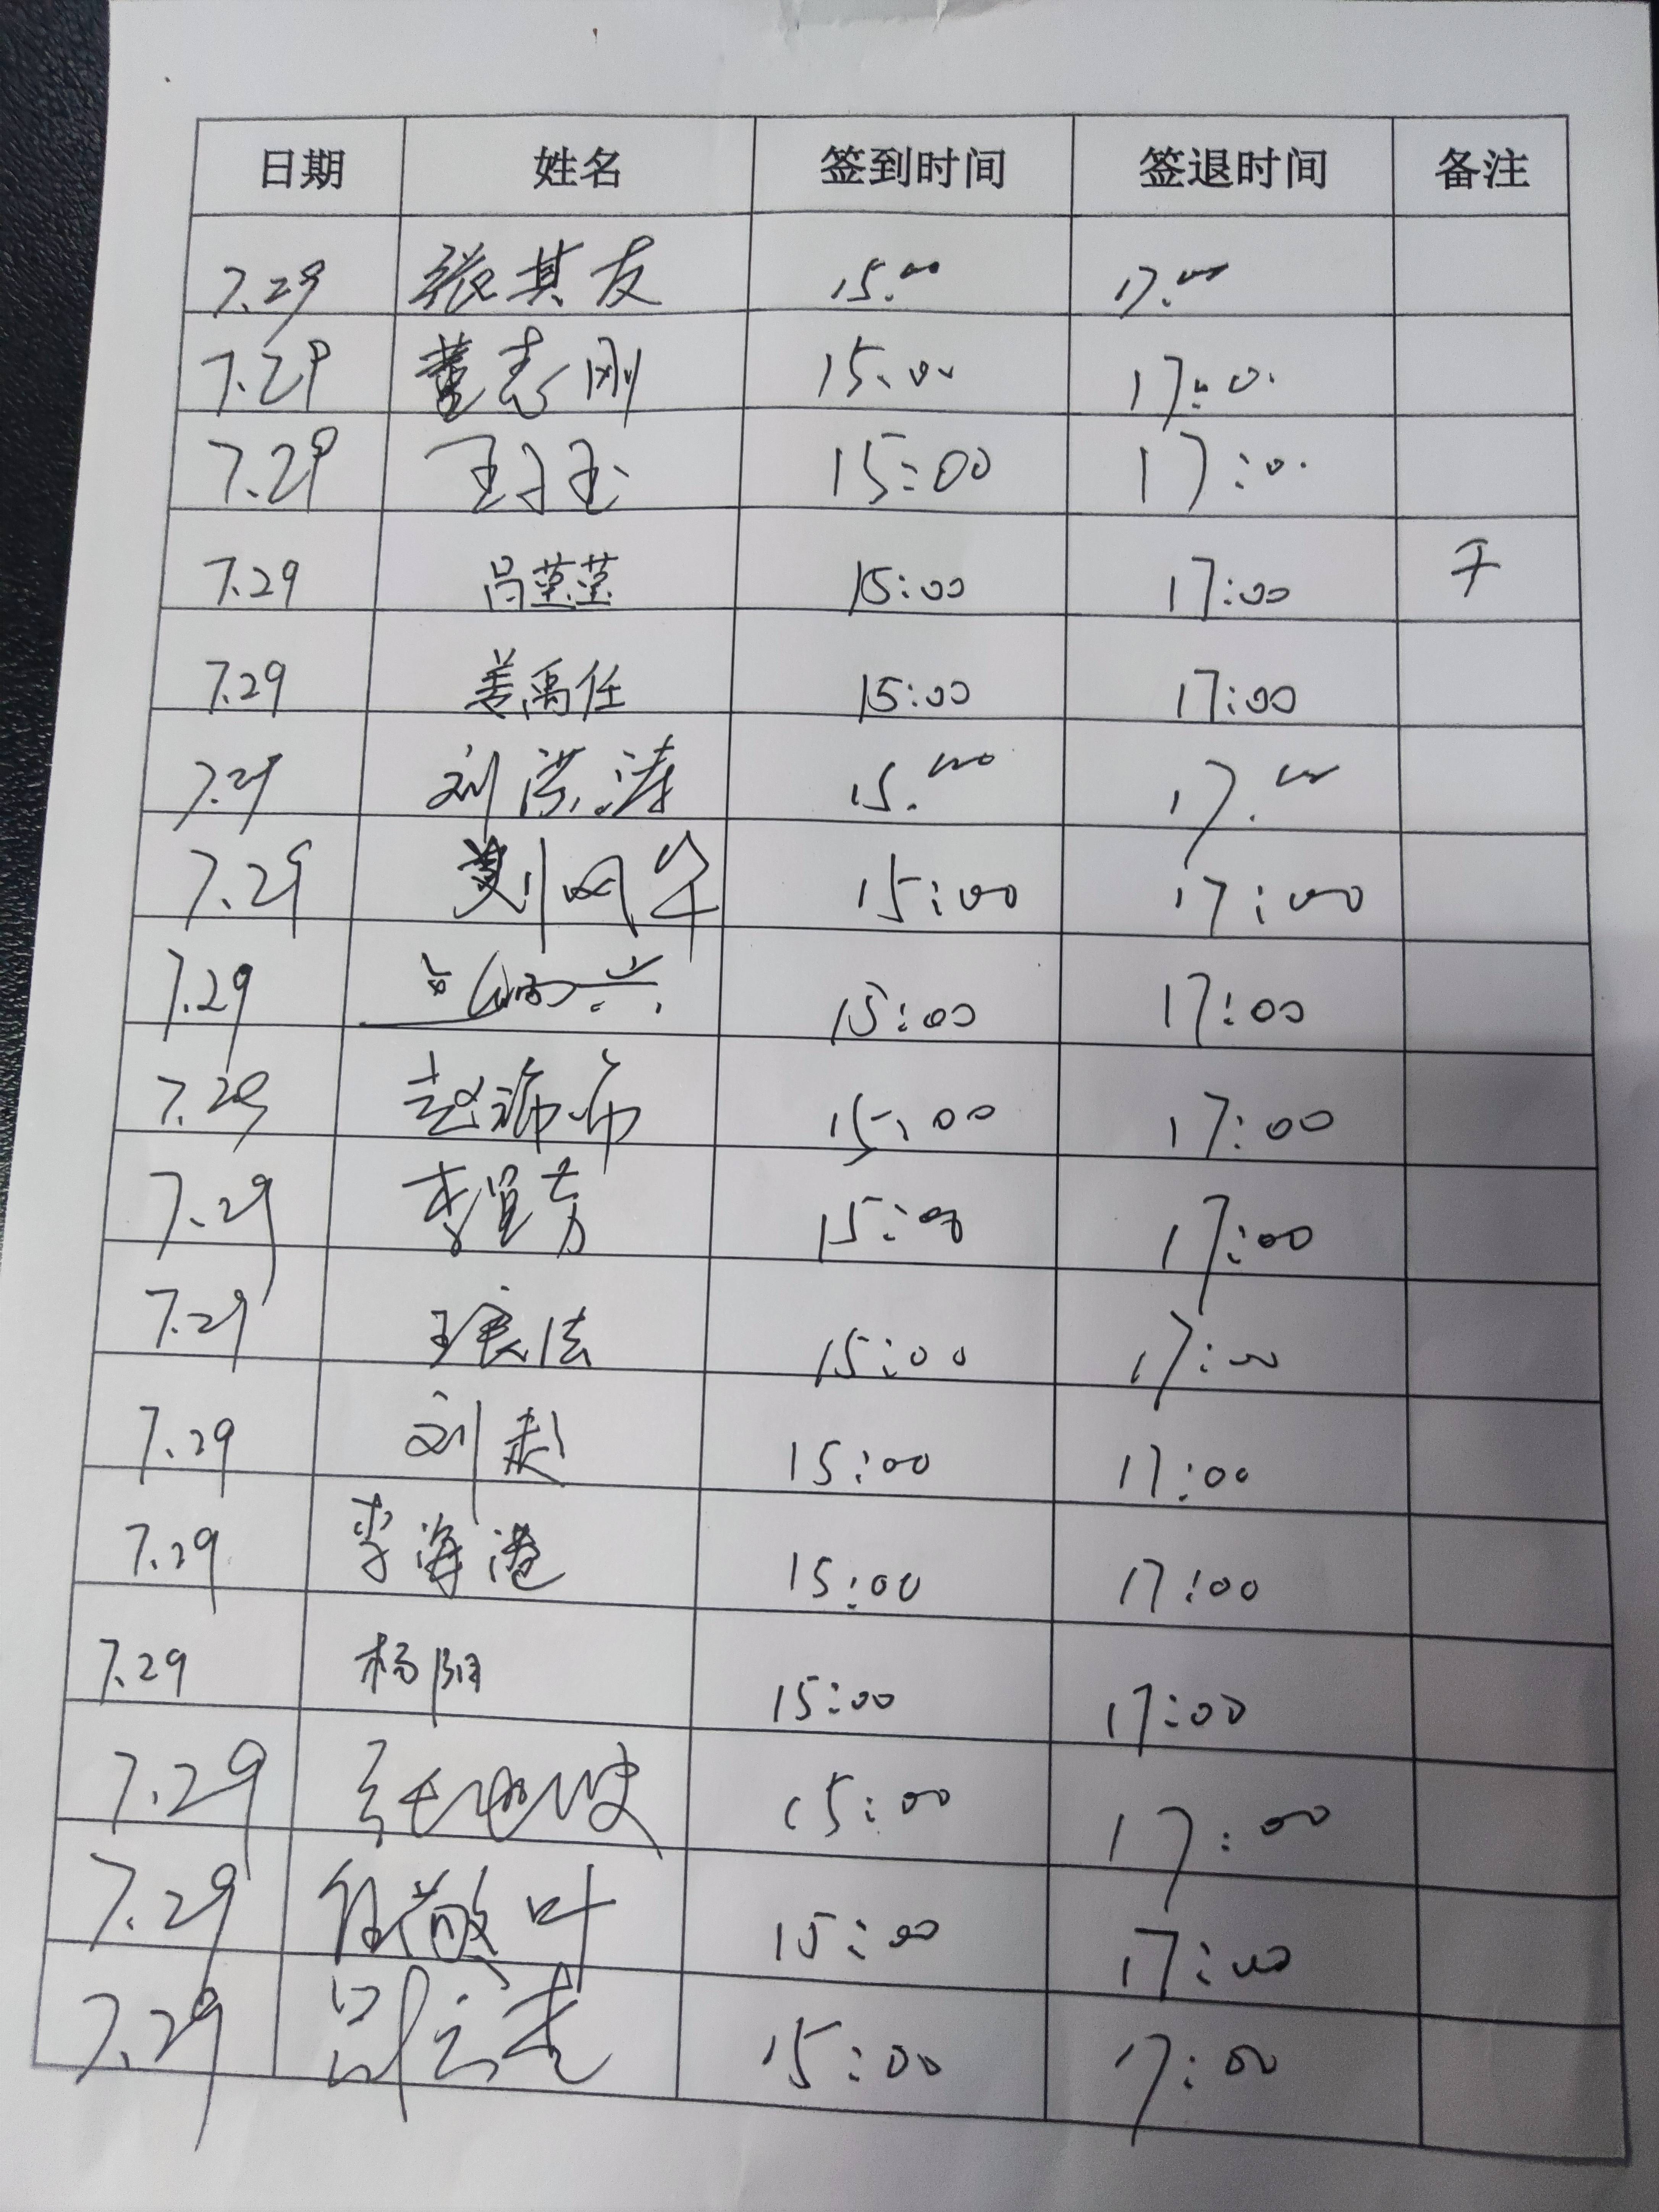 日期 姓名 签到时间 签退时间 备注
7.29 张其友 15.00 17.00
7.29 董志刚 15.00 17:00
7.29 15:00 17:00
7.29 吕莹莹 15:00 17:00
7.29 姜禹任 15:00 17:00
7.29 刘洪涛 15.00 17.00
7.29 15:00 17:00
7.29 15:00 17:00
7.29 15:00 17:00
7.29 15:00 17:00
7.29 15:00 17:00
7.29 刘 15:00 17:00
7.29 李海港 15:00 17:00
7.29 杨阳 15:00 17:00
7.29 15:00 17:00
7.29 任敬叶 15:00 17:00
7.29 15:00 17:00